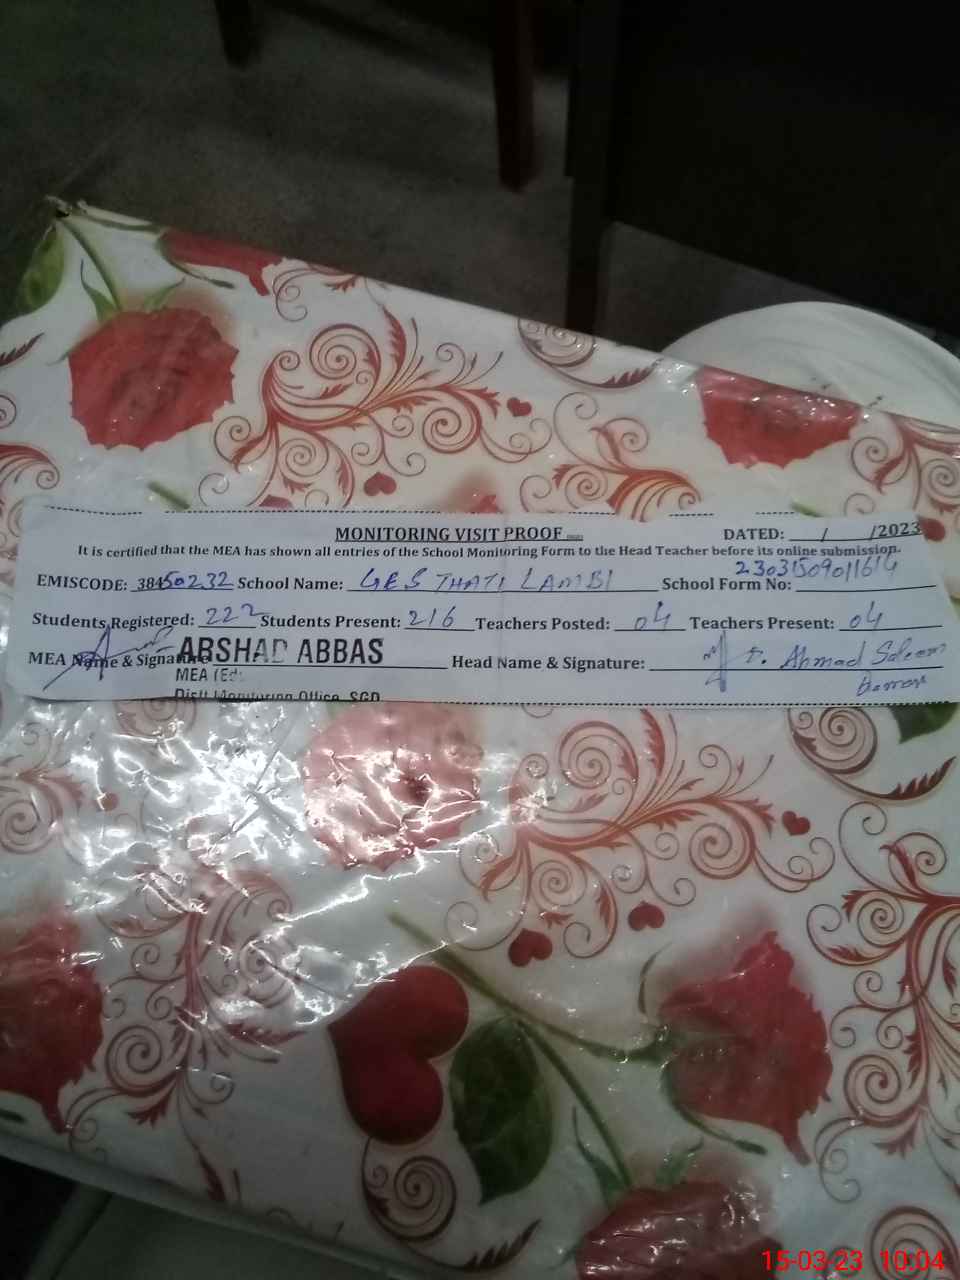 MONITORING VISIT PROOF DATED: / /2023
It is certified that the MEA has shown all entries of the School Monitoring Form to the Head Teacher before its online submission.
EMISCODE: 38450232 School Name: GES THATI LAMBI School Form No: 23031509011614
Students Registered: 222 Students Present: 216 Teachers Posted: 04 Teachers Present: 04
MEA Name & Signature ARSHAD ABBAS Head Name & Signature: Ahmad Saleem
MEA (Ed:
Distt Monitoring Office, SGD
15-03-23 10:04